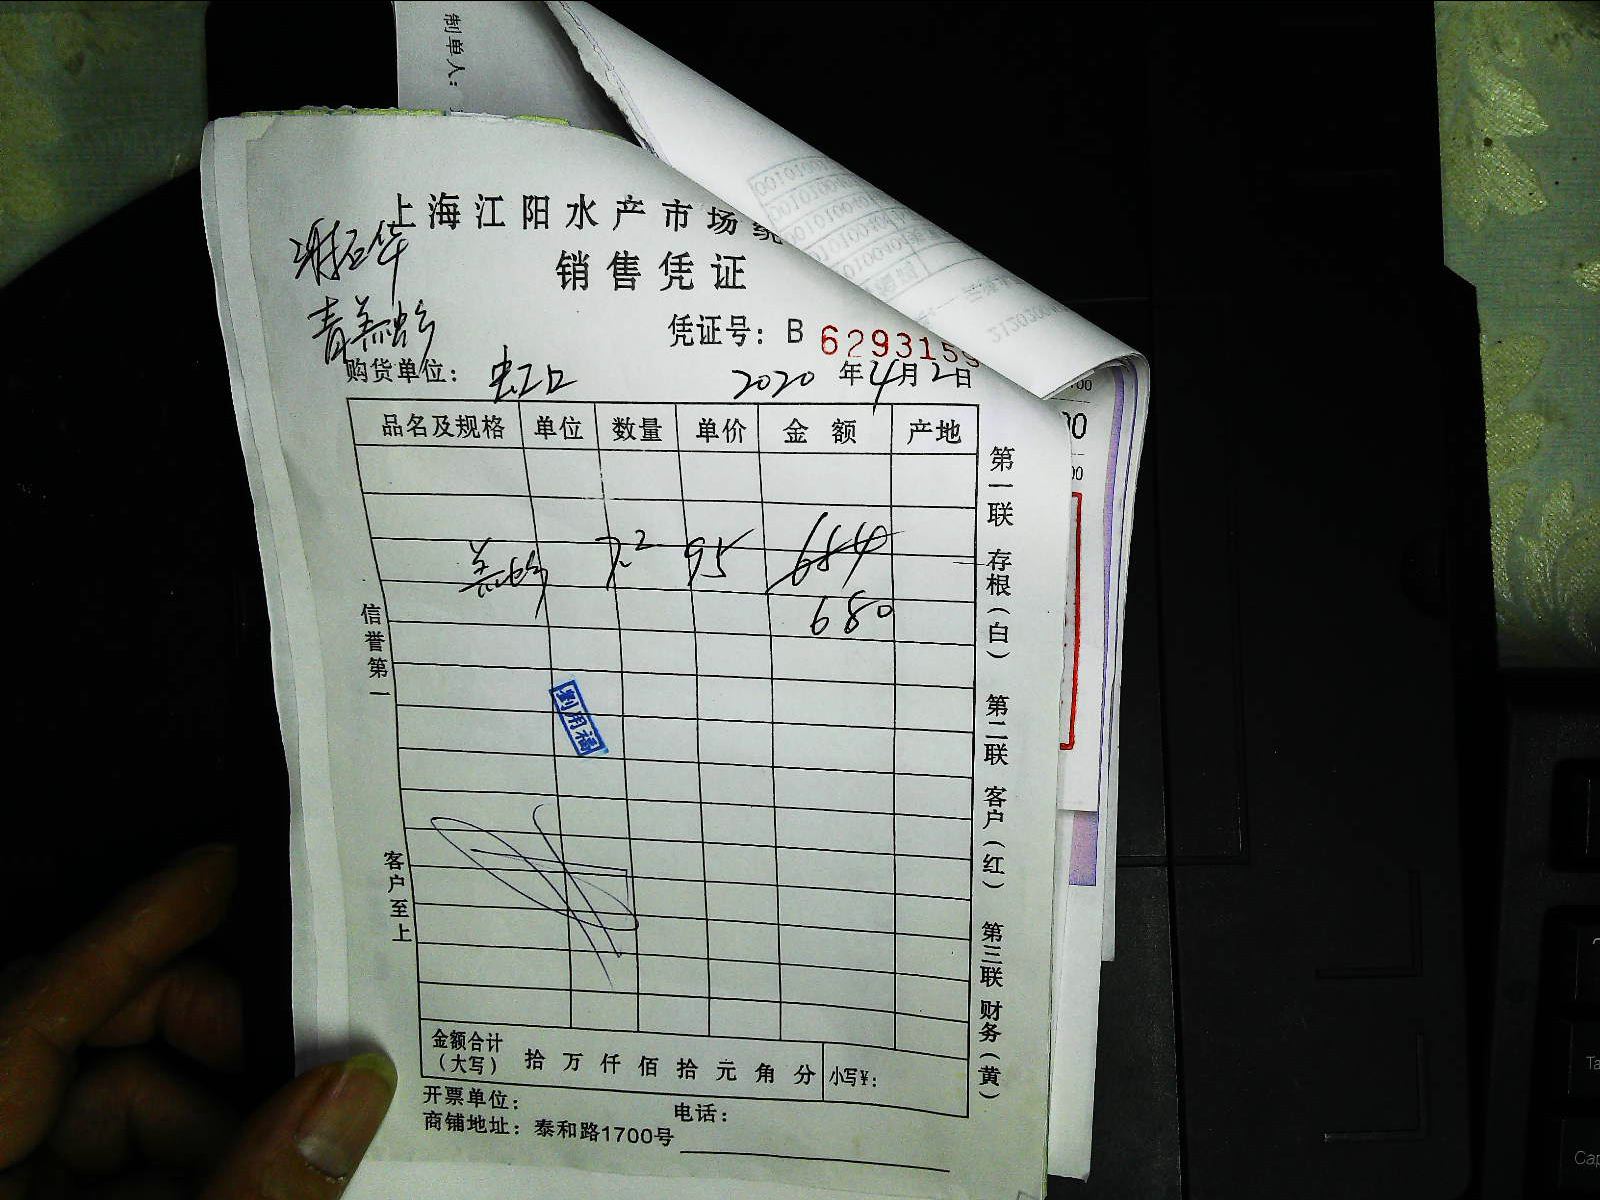 制单人:
上海江阳水产市场统
销售凭证
凭证号: B 6293159
购货单位: 虹口
2020 年 4月 2日
品名及规格 单位 数量 单价 金额 产地
7.2 95 684
680
信誉第一
客户至上
第一联 存根(白) 第二联 客户(红) 第三联 财务(黄)
金额合计
(大写) 拾 万 仟 佰 拾 元 角 分 小写¥:
开票单位: 电话:
商铺地址: 泰和路1700号